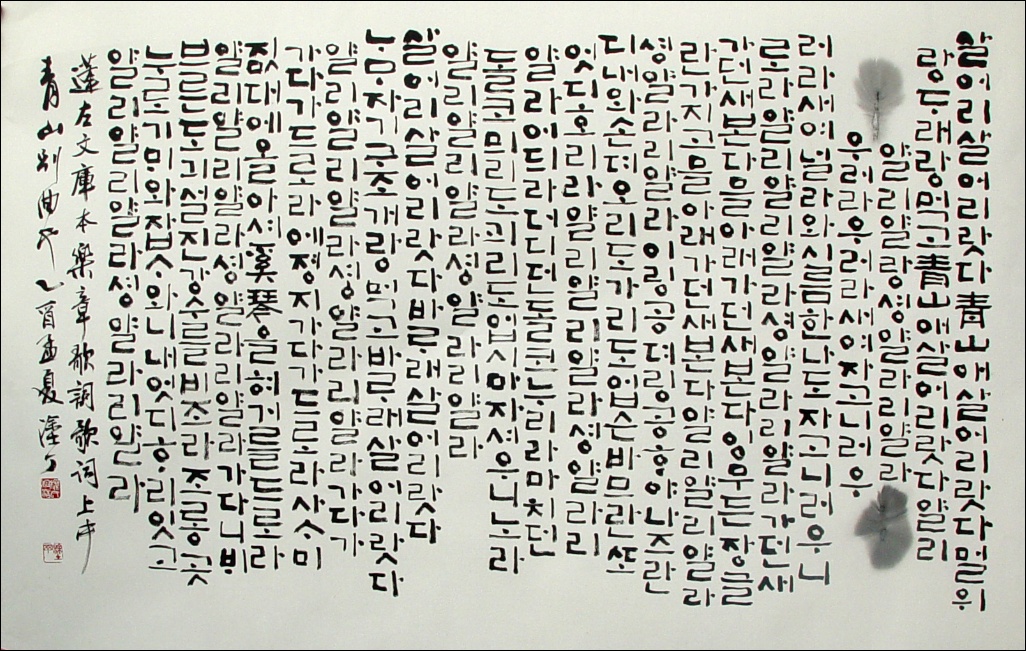 살어리살어리랏다靑山애살어리랏다멀위
랑ᄃᆞ래랑먹고靑山애살어리랏다얄리
얄리얄랑셩얄라리얄라
우러라우러라새여자고니러우
러라새여널라와시름한나도자고니러우니
로라얄리얄리얄라셩얄라리얄라가던새
가던새본다믈아래가던새본다잉무든장글
란가지고믈아래가던새본다얄리얄리얄라
셩얄라리얄라이링공뎌링공ᄒᆞ야나즈란
디내와손뎌오리도가리도업슨바므란ᄯᅩ
엇디호리라얄리얄리얄라셩얄라리
얄라어듸라더디던돌코누리라마치던
돌코믜리도괴리도업시마자셔우니노라
얄리얄리얄라셩얄라리얄라
살어리살어리랏다바ᄅᆞ래살어리랏다
ᄂᆞᄆᆞ자기구조개랑먹고바ᄅᆞ래살어리랏다
얄리얄리얄라셩얄라리얄라가다가
가다가드로라에졍지가다가드로라사ᄉᆞ미
짒대예올아셔溪琴을혀거를드로라
얄리얄리얄라셩얄라리얄라가다니ᄇᆡ
브른도긔설진강수를비조라조롱곳
누로기ᄆᆡ와잡ᄉᆞ와니내엇디ᄒᆞ리잇고
얄리얄리얄라셩얄라리얄라
蓬左文庫本樂章歌詞歌詞上中
靑山別曲也乙酉孟夏